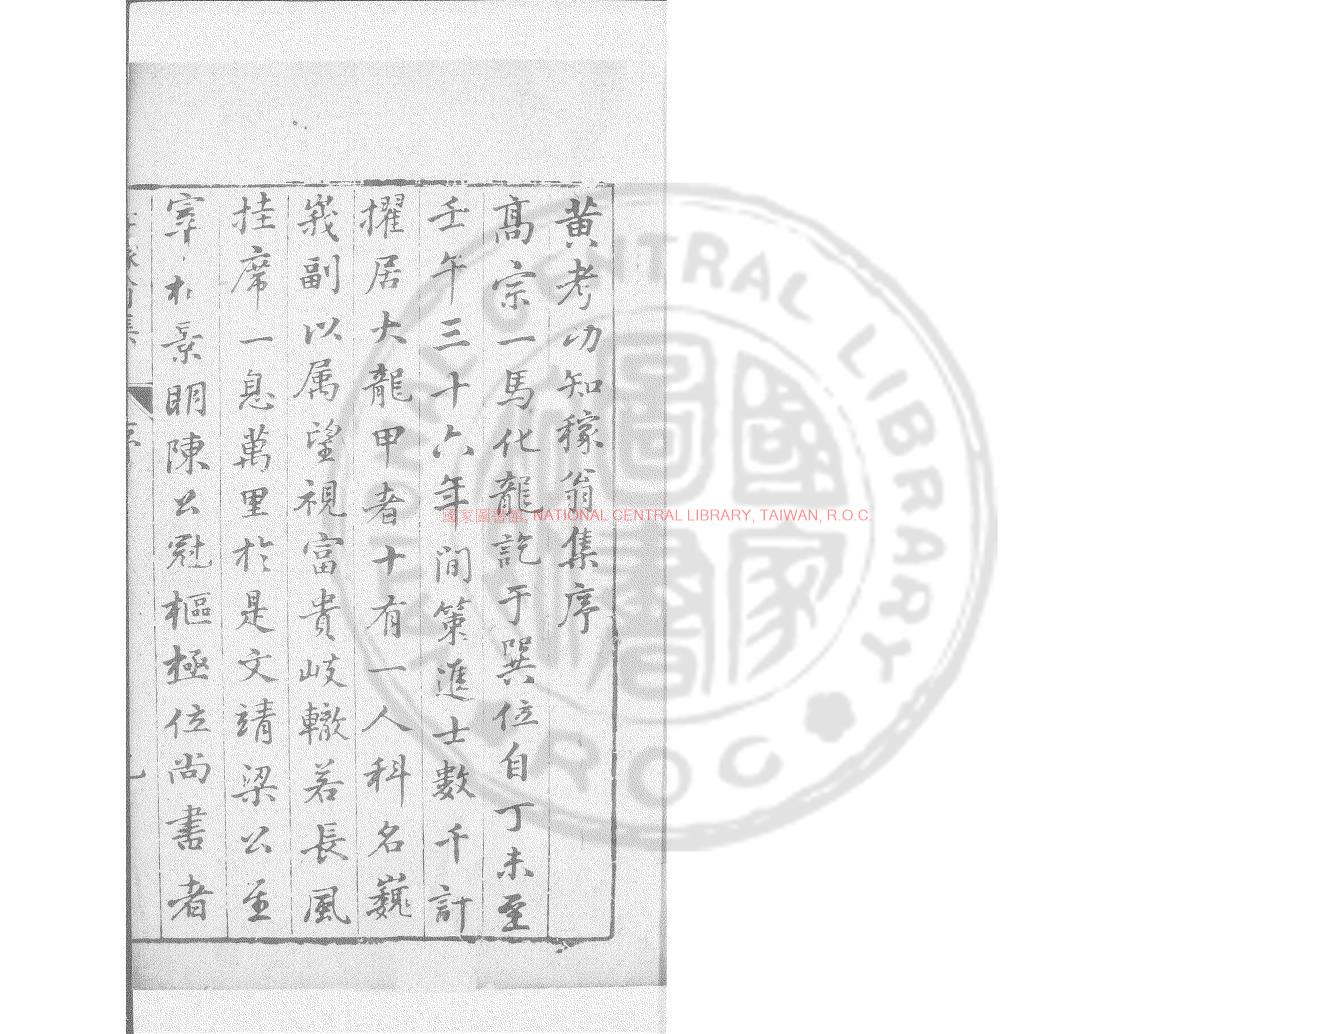 黄考功知稼翁集序
高宗一馬化龍訖于巽位自丁未至
壬午三十六年間策進士數千計
擢居大龍甲者十有一人科名巍
峩副以属望視富貴岐轍若長風
挂席一息萬里於是文靖梁公至
宰相景明陳公冠樞極位尚書者
國家圖書館, NATIONAL CENTRAL LIBRARY, TAIWAN, R.O.C.
NATIONAL CENTRAL LIBRARY
TAIWAN R O C
國家圖書